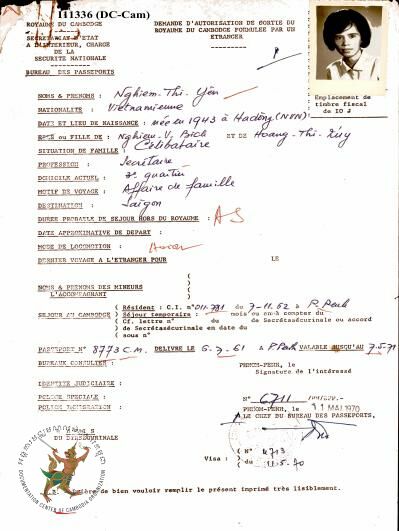 I11336 (DC-Cam)
ROYAUME DU CAMBODGE
SECRETARIAT D'ETAT
A L'INTERIEUR, CHARGE
DE LA
SECURITE NATIONALE
BUREAU DES PASSEPORTS
DEMANDE D'AUTORISATION DE SORTIE DU
ROYAUME DU CAMBODGE FORMULEE PAR UN
ETRANGER
Emplacement de
timbre fiscal
de 10 J
NOMS & PRENOMS : Nghiem-Thi-Yên
NATIONALITE : Vietnamienne
DATE ET LIEU DE NAISSANCE : née en 1943 à Hadông (NVN)
FILS ou FILLE DE : Nghiem-V. Bich ET DE Hoang-Thi-Thuy
SITUATION DE FAMILLE : Célibataire
PROFESSION : Secrétaire
DOMICILE ACTUEL : 3è quartier
MOTIF DE VOYAGE : Affaire de famille
DESTINATION : Saïgon
DUREE PROBABLE DE SEJOUR HORS DU ROYAUME : AS
DATE APPROXIMATIVE DE DEPART :
MODE DE LOCOMOTION : Avion
DERNIER VOYAGE A L'ETRANGER POUR LE
NOMS & PRENOMS DES MINEURS
L'ACCOMPAGNANT
SEJOUR AU CAMBODGE
( Résident : C.I. n° D11.781 du 7-11.62 à P. Penh
( Séjour temporaire : mois ou en à compter du
( Cf. lettre n° du de Secrétasécurinale ou accord
( de Secrétasécurinale en date du
( sous n°
PASSEPORT N° 8773 C.M. DELIVRE LE 6-7-61 à P. Penh VALABLE JUSQU'AU 7.5.71
BUREAUX CONSULTES :
PHNOM-PENH, le
Signature de l'intéressé
IDENTITE JUDICIAIRE :
POLICE SPECIALE :
POLICE IMMIGRATION :
N° 6711
PHNOM-PENH, le 11 MAI 1970
LE CHEF DU BUREAU DES PASSEPORTS,
Visa : ( N° 4713
( du 11.5.70
DOCUMENTATION CENTER OF CAMBODIA ORGANIZATION
de bien vouloir remplir le présent imprimé très lisiblement.